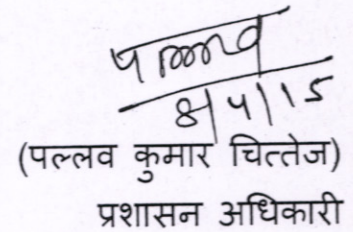 पल्लव
8/4/15
(पल्लव कुमार चित्तेज)
प्रशासन अधिकारी